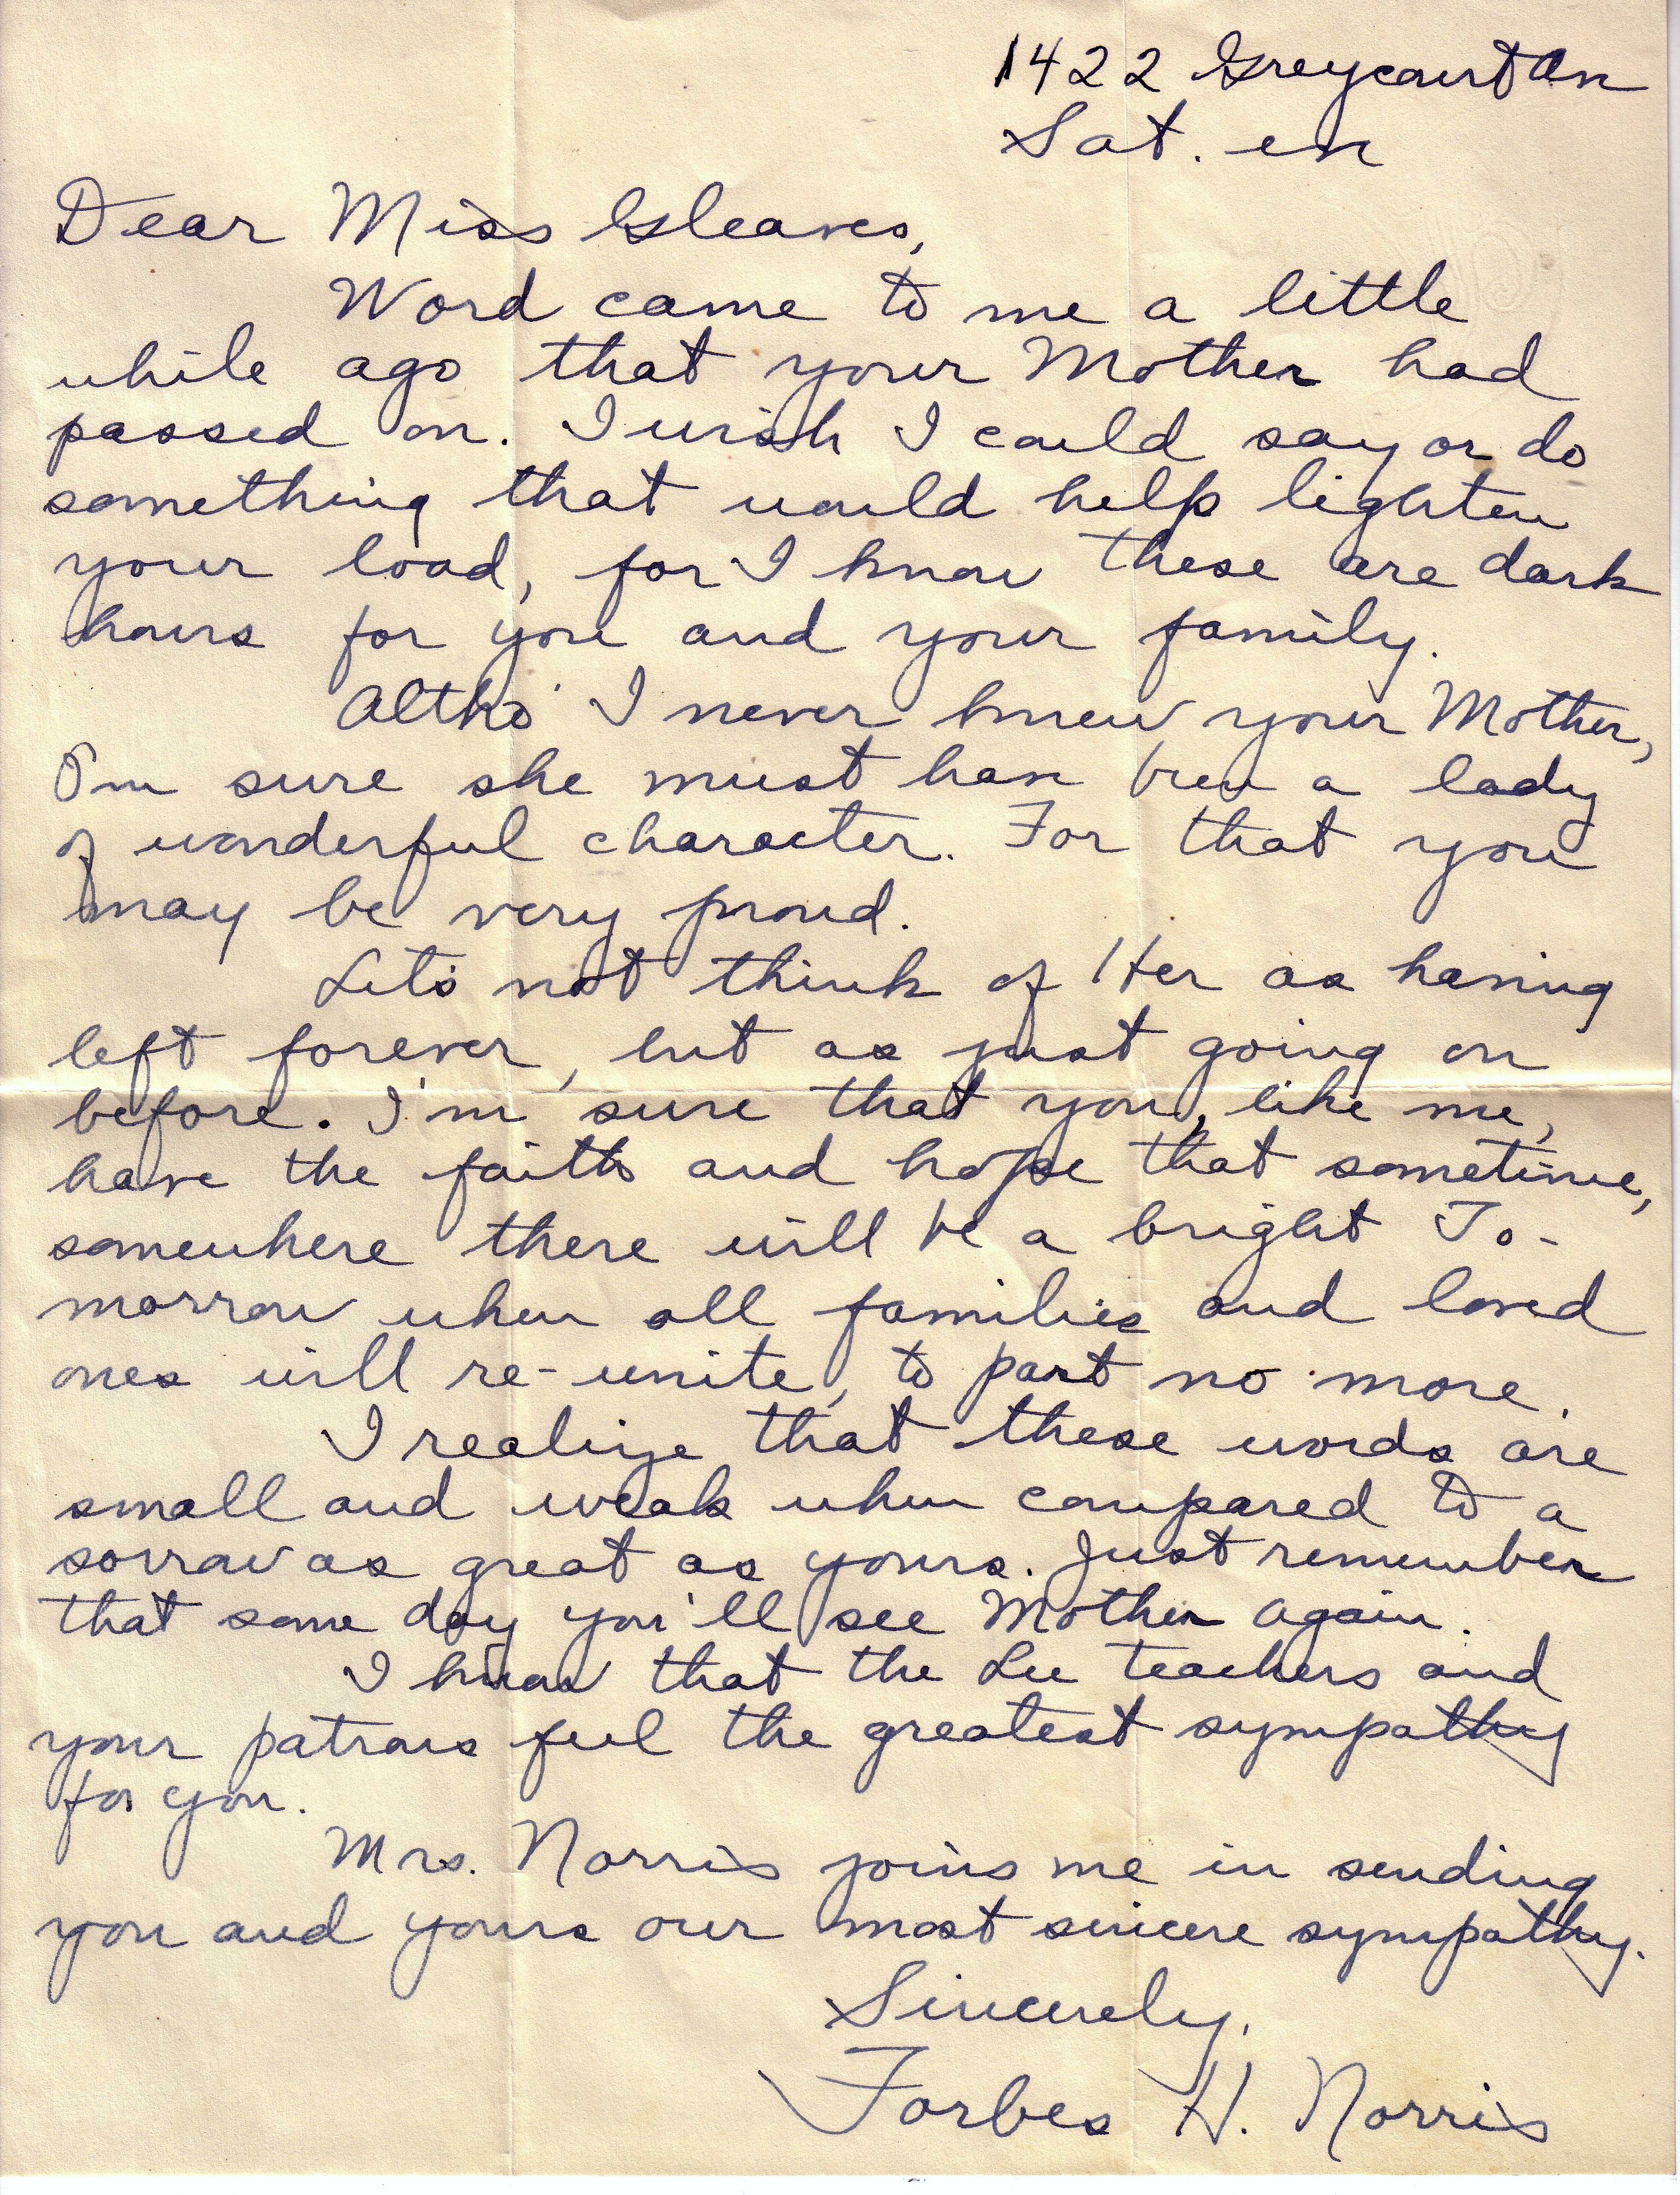 1422 Greycourt Av
Sat. ev
Dear Miss Gleaves,
Word came to me a little
while ago that your Mother had
passed on. I wish I could say or do
something that would help lighten
your load, for I know these are dark
hours for you and your family.
Altho' I never knew your Mother,
I'm sure she must have been a lady
of wonderful character. For that you
may be very proud.
Let's not think of Her as having
left forever, but as just going on
before. I'm sure that you, like me,
have the faith and hope that sometime,
somewhere there will be a bright To-
morrow when all families and loved
ones will re-unite, to part no more.
I realize that these words are
small and weak when compared to a
sorrow as great as yours. Just remember
that some day you'll see Mother again.
I know that the Lee teachers and
your patrons feel the greatest sympathy
for you.
Mrs. Norris joins me in sending
you and yours our most sincere sympathy.
Sincerely,
Forbes H. Norris